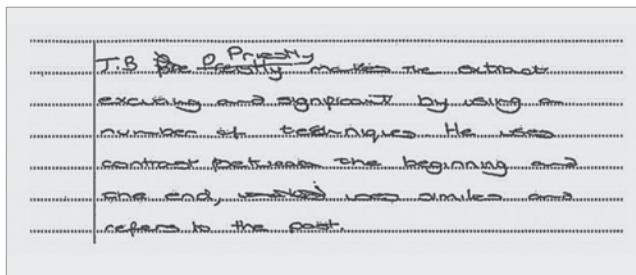 Priestly
J.B Priestly makes the extract
exciting and significant by using a
number of techniques. He uses
contrast between the beginning and
the end, uses similes and
refers to the past.